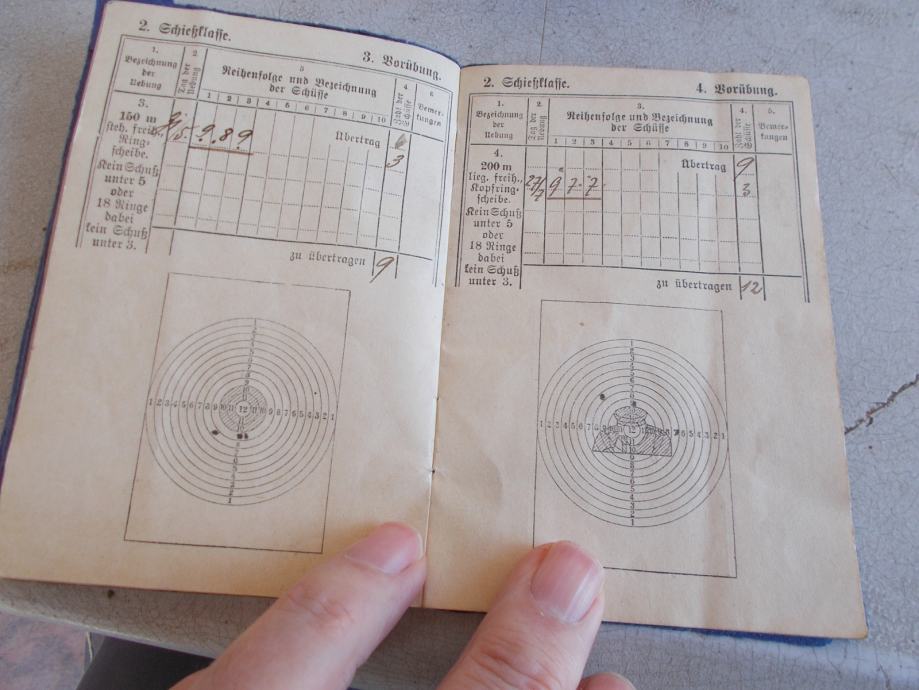 2. Schießklasse.
3. Vorübung.
1. 2. 3 4. 5.
Bezeichnung der Uebung
Tag der Uebung
Reihenfolge und Bezeichnung der Schüsse
Zahl der Schüsse
Bemerkungen
1 2 3 4 5 6 7 8 9 10
3.
150 m
steh. freih.
Ringscheibe.
Kein Schuß
unter 5
oder
18 Ringe
dabei
kein Schuß
unter 3.
9 8 9
Übertrag
3
zu übertragen 9
1 2 3 4 5 6 7 8 9 10 11 12 11 10 9 8 7 6 5 4 3 2 1
2. Schießklasse.
4. Vorübung.
1. 2. 3. 4. 5.
Bezeichnung der Uebung
Tag der Uebung
Reihenfolge und Bezeichnung der Schüsse
Zahl der Schüsse
Bemerkungen
1 2 3 4 5 6 7 8 9 10
4.
200 m
lieg. freih.,
Kopfringscheibe.
Kein Schuß
unter 5
oder
18 Ringe
dabei
kein Schuß
unter 3.
27/7 9 7 7
Übertrag 9
3
zu übertragen 12